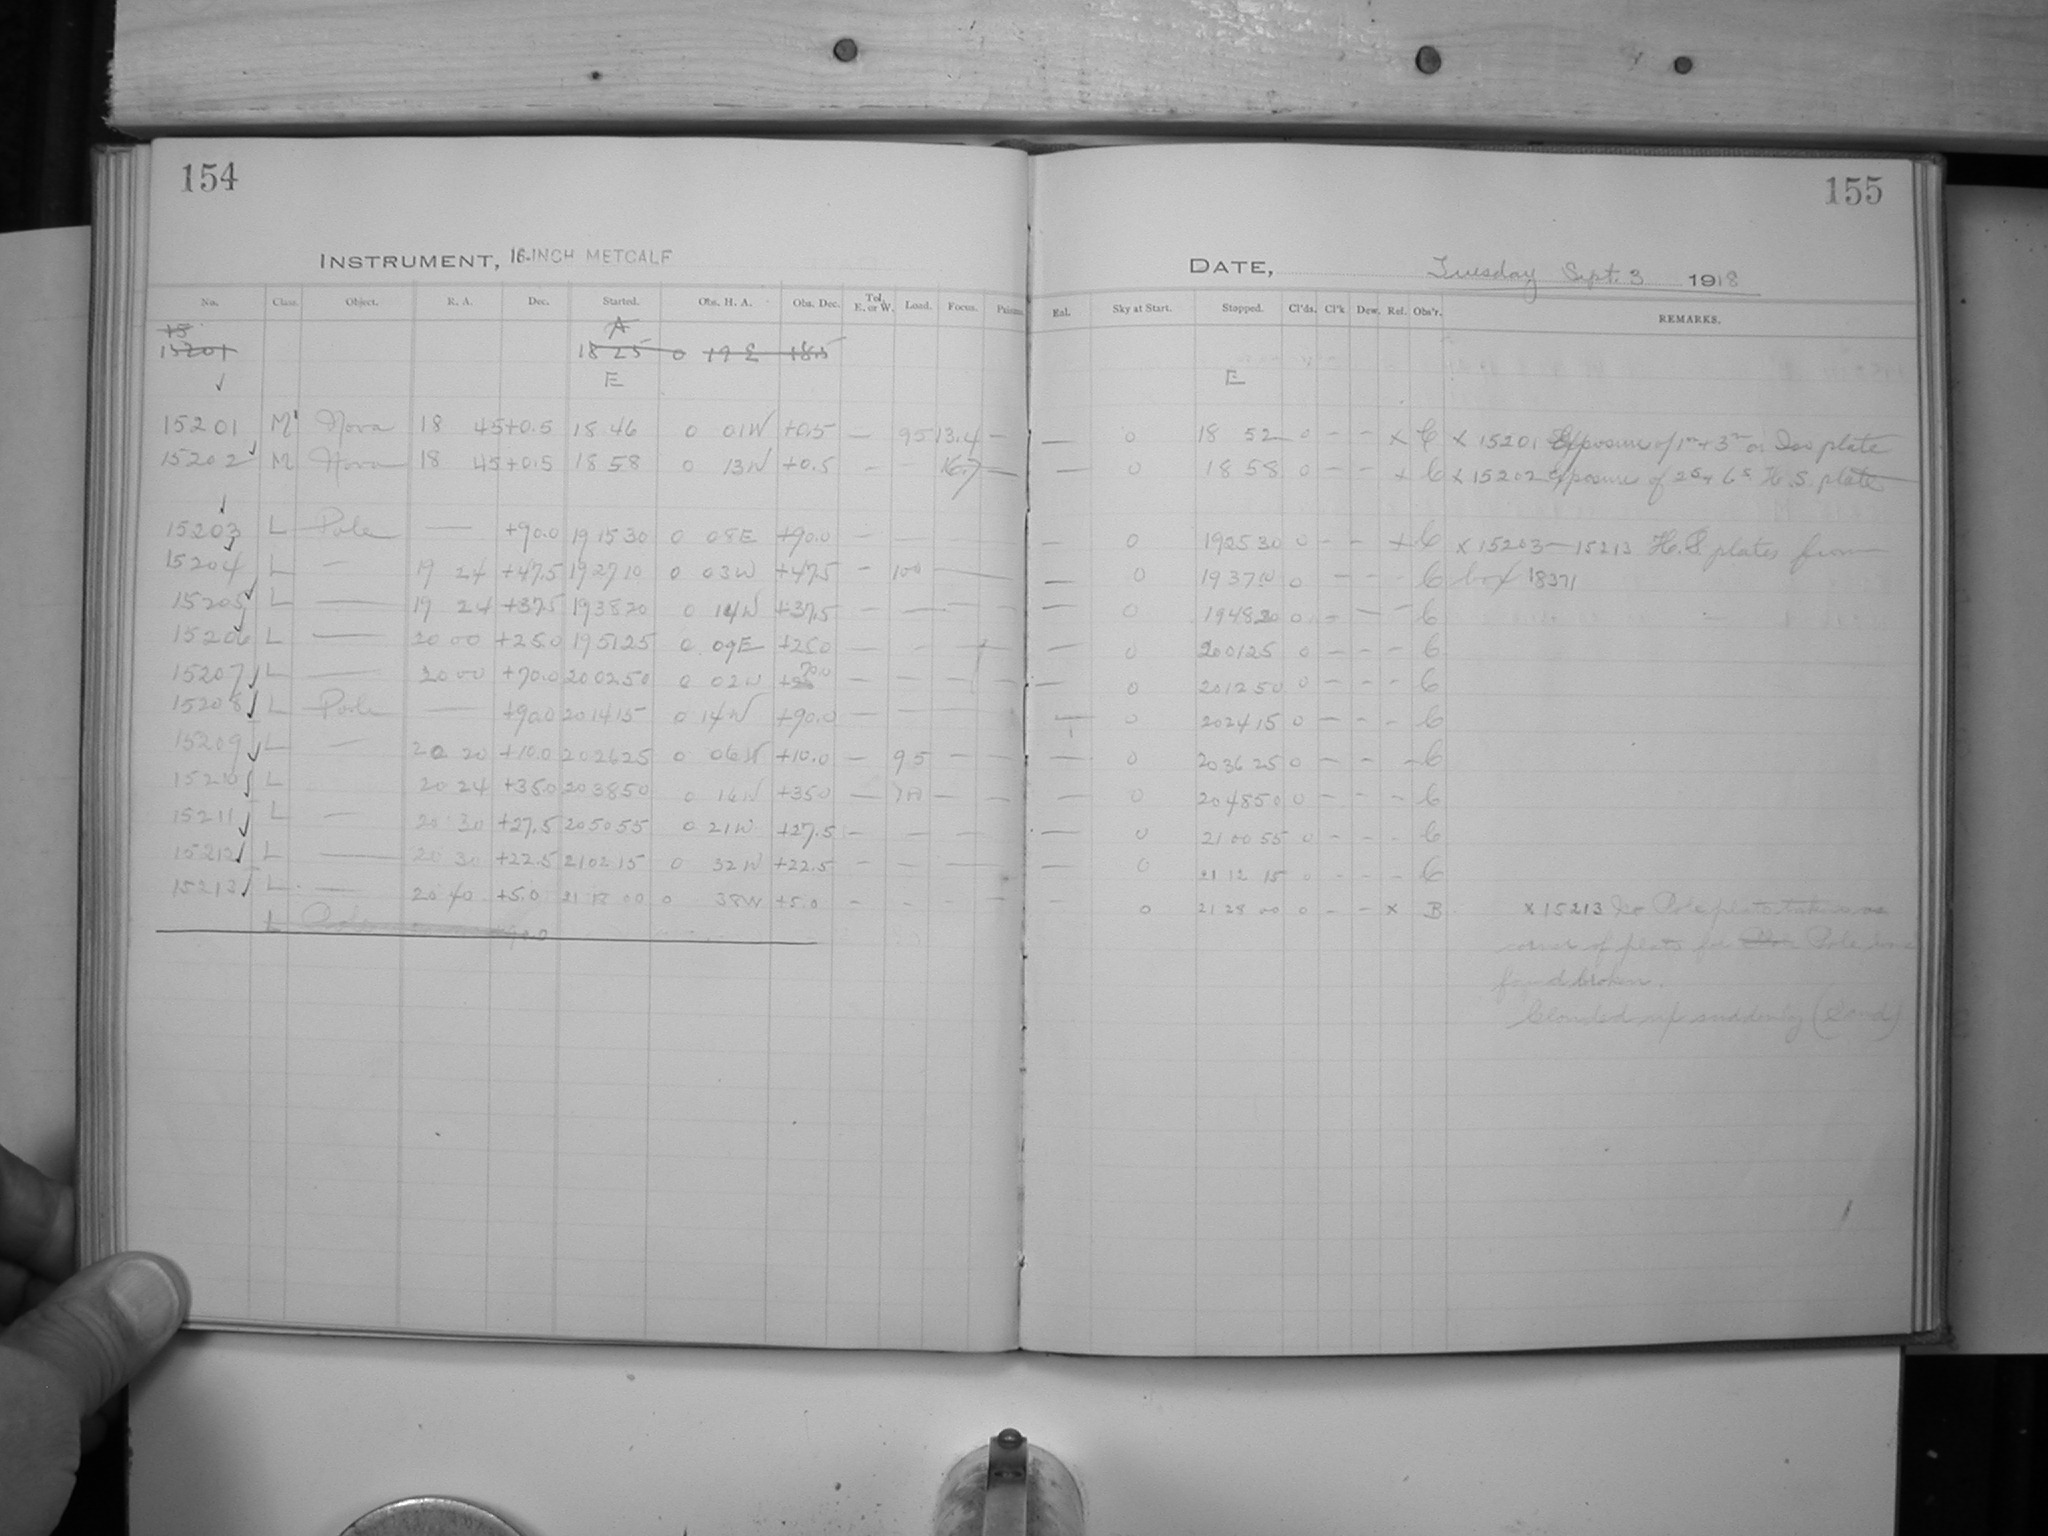 154
INSTRUMENT, 16-INCH METCALF
No. Class. Object. R. A. Dec. Started. Obs. H. A. Obs. Dec. Tel. E. or W. Load. Focus.
A
15201 18 25 0 19 E +18.5
E
15201 M Nova 18 45 +0.5 18 46 0 01W +0.5 — 95 13.4 —
15202 M Nova 18 45 +0.5 18 58 0 13W +0.5 - - 16.7 —
15203 L Pole — +90.0 19 15 30 0 08E +90.0 —
15204 L — 19 24 +47.5 19 27 10 0 03W +47.5 — 100 —
15205 L — 19 24 +37.5 19 38 20 0 14W +37.5 — — —
15206 L — 20 00 +25.0 19 51 25 0 09E +25.0 — - -
15207 L — 20 00 +70.0 20 02 50 0 02W 70.0 — — — —
15208 L Pole — +90.0 20 14 15 0 14W +90.0 —
15209 L — 20 20 +10.0 20 26 25 0 06W +10.0 — 95 — —
15210 L 20 24 +35.0 20 38 50 0 14W +35.0 — — —
15211 L — 20 30 +27.5 20 50 55 0 21W +27.5 — — — —
15212 L — 20 30 +22.5 21 02 15 0 32W +22.5 — — — —
15213 L — 20 40 +5.0 21 18 00 0 38W +5.0 - - - —
L Pole
155
DATE, Tuesday Sept. 3 1918
Sky at Start. Stopped. Cl'ds. Cl'k Dew. Rel. Obs'r. REMARKS.
E
— 0 18 52 0 — — x C x 15201 Exposure of 1m + 3m on Iso plate
— 0 18 58 0 — — x C x 15202 Exposure of 2s + 6s H.S. plate
— 0 19 25 30 0 - - x C x 15203—15213 H.S plates from
— 0 19 37 10 0 - - - C box 18371
— 0 19 48 20 0 - — - C
— 0 20 01 25 0 — — - C
— 0 20 12 50 0 - - - C
— 0 20 24 15 0 — - - C
— 0 20 36 25 0 — - - C
— 0 20 48 50 0 - - - C
— 0 21 00 55 0 - - - C
— 0 21 12 15 0 - - - C
— 0 21 28 00 0 - - x B x 15213 No Pole plate taken as
corner of plate for Pole was
found broken.
Clouded up suddenly